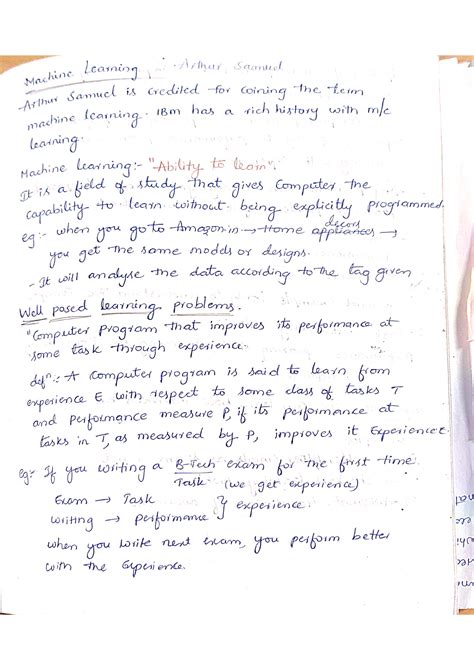 Machine Learning - Arthur Samuel
- Arthur Samuel is credited for coining the term
machine learning. IBM has a rich history with m/c
learning.
Machine Learning:- "Ability to learn".
It is a field of study that gives Computer the
capability to learn without being explicitly programmed.
eg:- when you go to Amazon.in → Home appliances →
decors
you get the same modds or designs.
- It will analyse the data according to the tag given
Well posed learning problems.
"Computer program that improves its performance at
some task through experience.
defn:- A computer program is said to learn from
experience E with respect to some class of tasks T
and performance measure P, if its performance at
tasks in T, as measured by P, improves it Experience
eg:- If you writing a B-Tech exam for the first time
Task (we get experience)
Exam → Task
writing → performance } experience.
when you write next exam, you perform better
with the Experience.